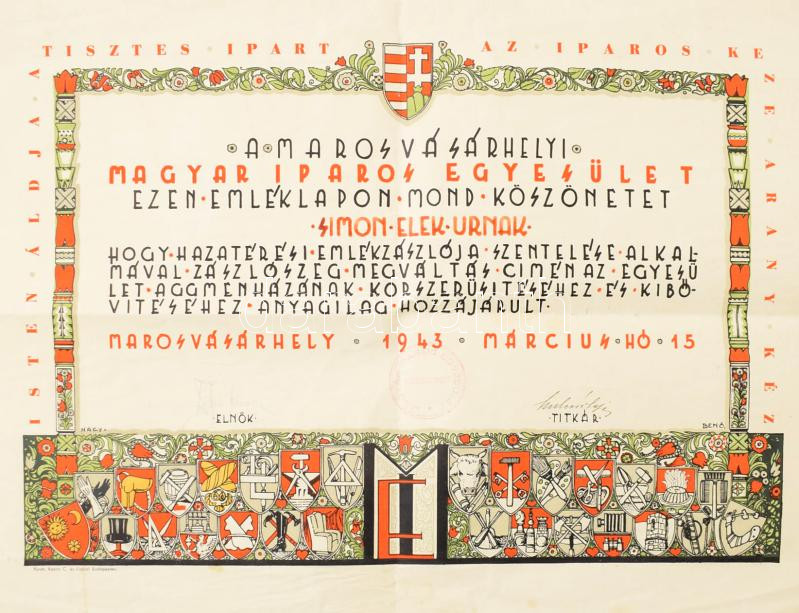 ISTEN ÁLDJA A
TISZTES IPART
AZ IPAROS KE
ZE ARANY KÉZ
A MAROSVÁSÁRHELYI
MAGYAR IPAROS EGYESÜLET
EZEN·EMLÉKLAPON·MOND·KÖSZÖNETET
·SIMON·ELEK·URNAK·
HOGY·HAZATÉRÉSI·EMLÉKZÁSZLÓJA·SZENTELÉSE·ALKAL-
MÁVAL·ZÁSZLÓSZEG·MEGVÁLTÁS·CIMÉN AZ·EGYESÜ
LET·AGGMENHÁZÁNAK·KORSZERÜSITÉSÉHEZ·ÉS·KIBŐ-
VITÉSÉHEZ·ANYAGILAG·HOZZÁJÁRULT·
MAROSVÁSÁRHELY · 1943 · MÁRCIUS·HÓ·15
·ELNÖK·
·TITKÁR·
NAGY·
BENŐ·
MIE